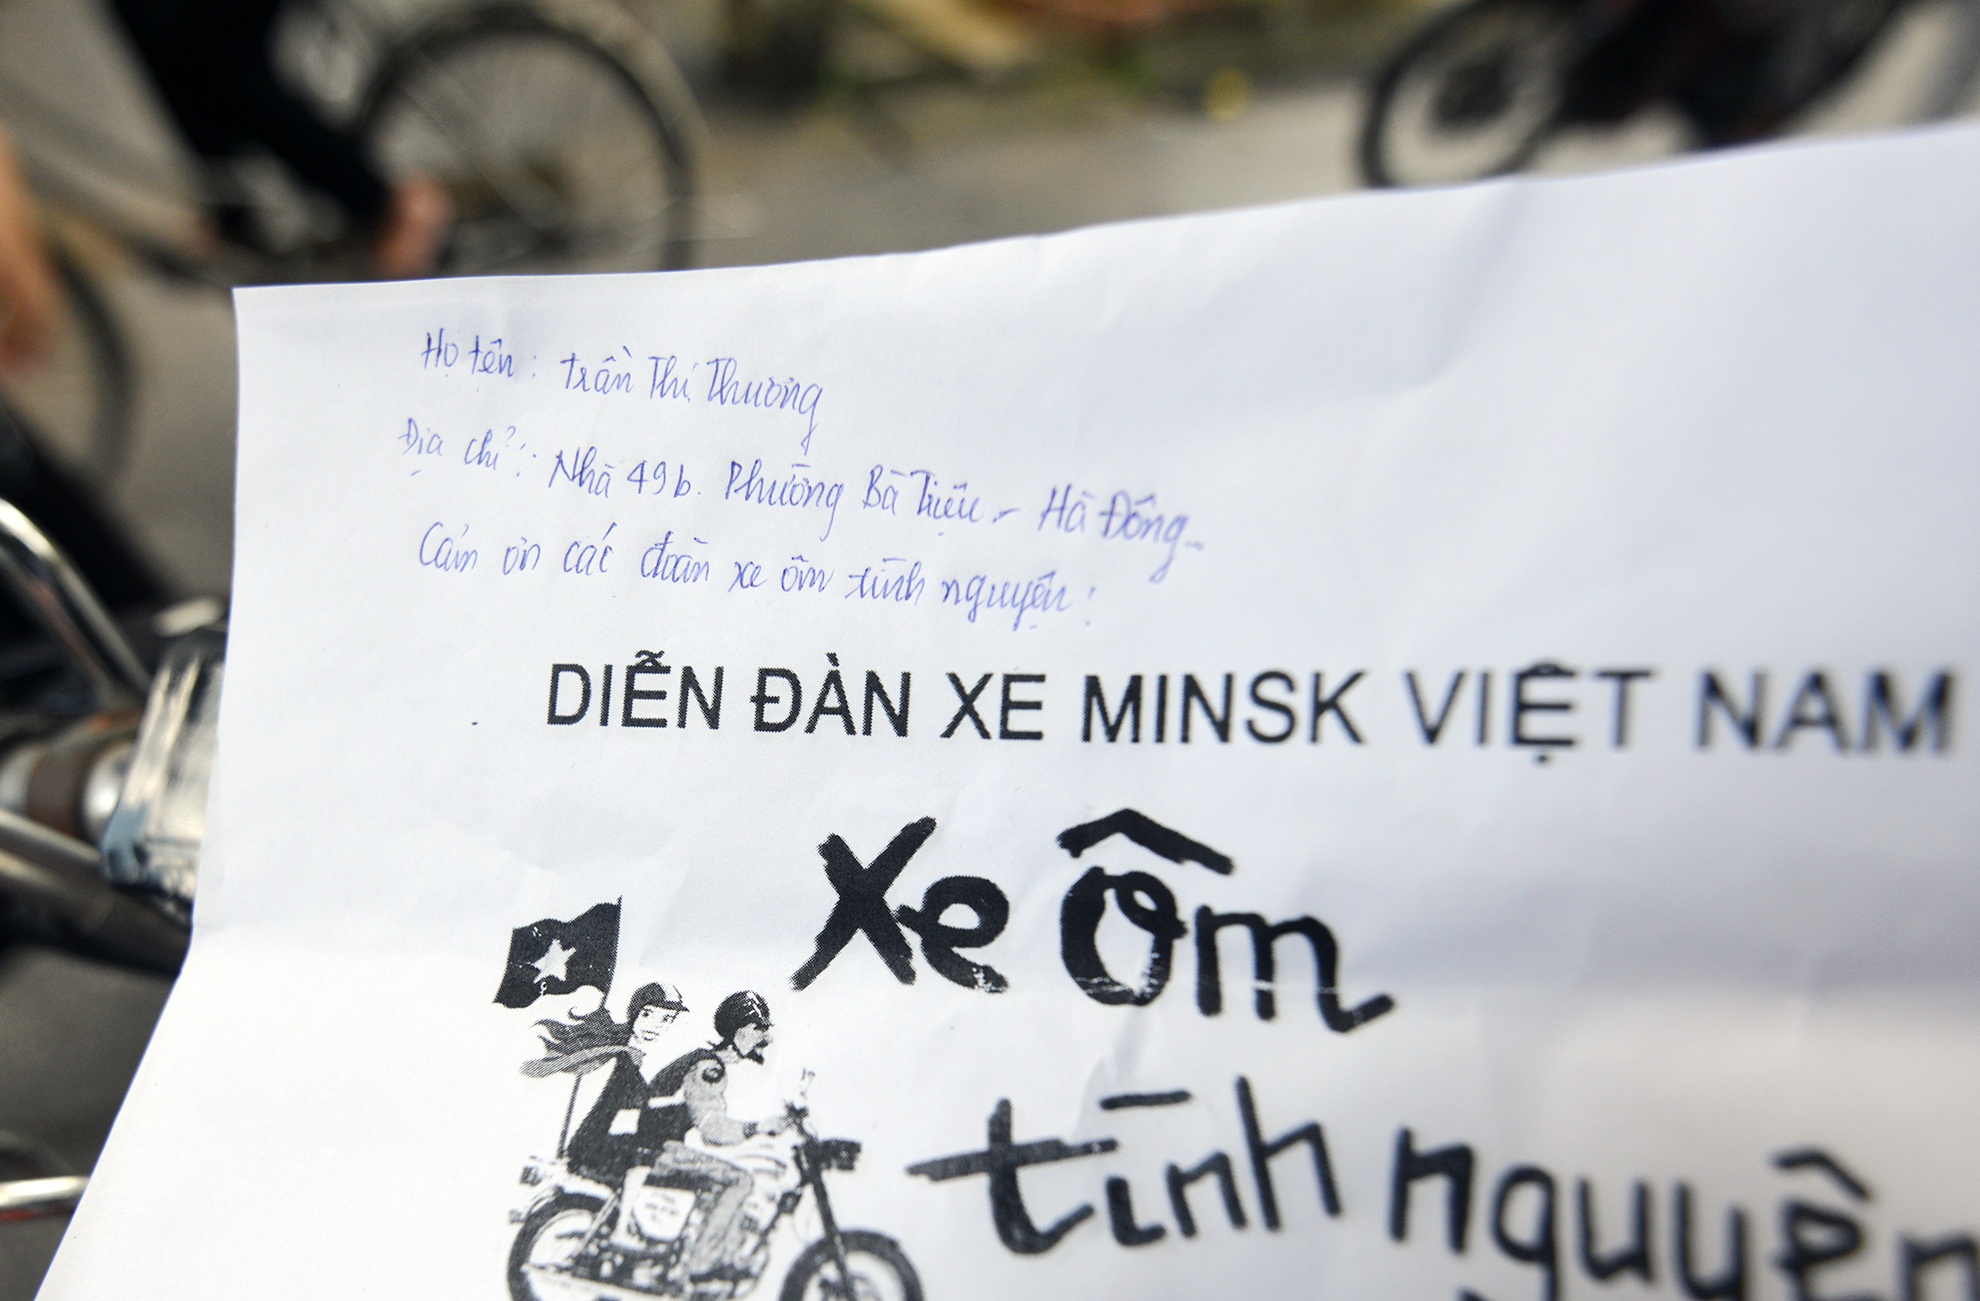 Họ tên : Trần Thị Thương
Địa chỉ : Nhà 49b. Phường Bà Triệu - Hà Đông
Cảm ơn các đoàn xe ôm tình nguyện :
DIỄN ĐÀN XE MINSK VIỆT NAM
Xe Ôm
tình nguyện